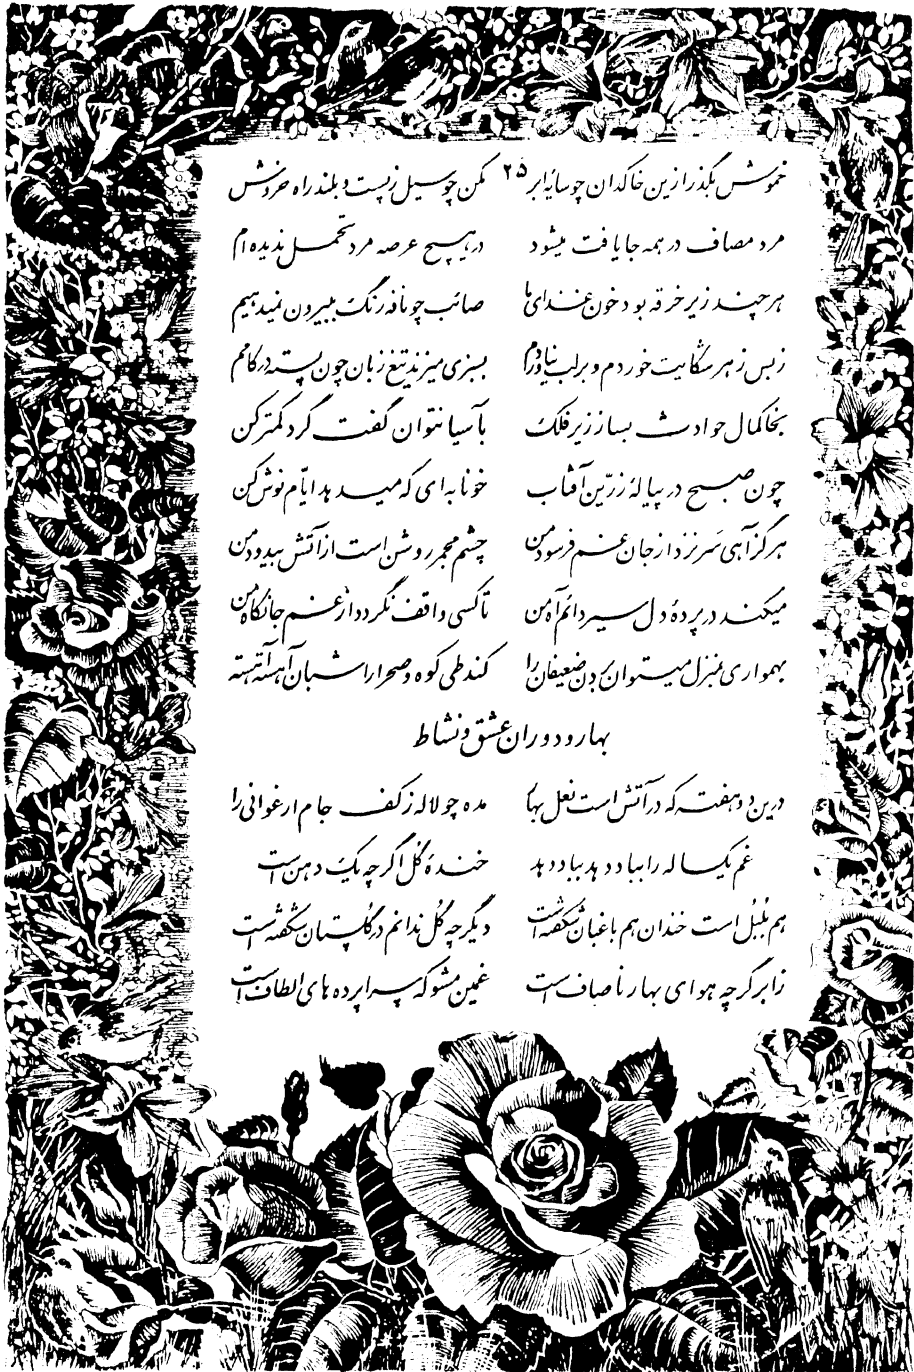 خموش بگذر ازین خاکدان چو سایهٔ ابر ۲۵ مکن چو سیل ز پست و بلند راه خروش
مرد مصاف در همه جا یافت میشود در هیچ عرصه مرد تحمل ندیده ام
هر چند زیر خرقه بود خون غذای ما صائب چو نافه رنگ به بیرون نمیدهیم
ز بس زهر شکایت خوردم و بر لب نیاوردم بسبزی میزند تیغ زبان چون پسته در کامم
بخاکمال حوادث بساز زیر فلک بآسیا نتوان گفت گرد کمتر کن
چون صبح در پیالهٔ زرین آفتاب خونابه ای که میدهد ایام نوش کن
هرگز آهی سر نزد از جان غم فرسود من چشم مجمر روشن است از آتش بیدود من
میکند در پردهٔ دل سیر دائم آه من تا کسی واقف نگردد از غم جانکاه من
بهمواری بمنزل میتوان بردن ضعیفان را کند طی کوه و صحرا را شبان آهسته آهسته
بهار و دوران عشق و نشاط
درین دو هفته که در آتش است نعل بهار مده چو لاله ز کف جام ارغوانی را
غم یکساله را بباد دهد بباد دهد خندهٔ گل اگر چه یک دهن است
هم بلبل است خندان هم باغبان شکفته است دیگر چه گل ندانم در گلستان شکفته است
ز ابر گرچه هوای بهار ناصاف است غمین مشو که سراپرده های الطاف است